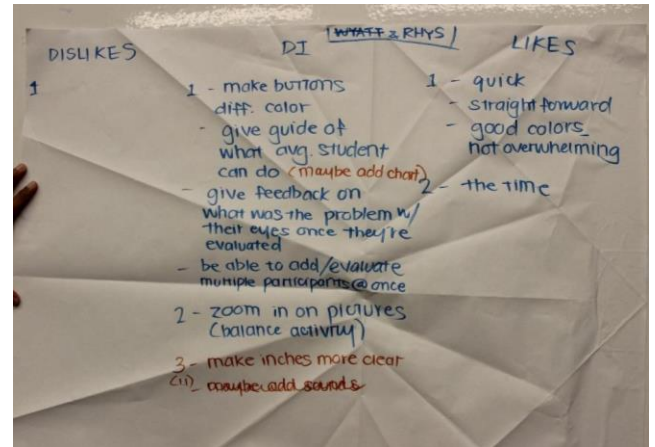 WYATT & RHYS
DISLIKES
1
DI
1 - make buttons
diff. color
- give guide of
what avg. student
can do (maybe add chart)
- give feedback on
what was the problem w/
their eyes once they're
evaluated
- be able to add/evaluate
multiple participants @ once
2 - zoom in on pictures
(balance activity)
3 - make inches more clear
(11) - maybe add sounds
LIKES
1 - quick
- straight forward
- good colors_
not overwhelming
2 - the time